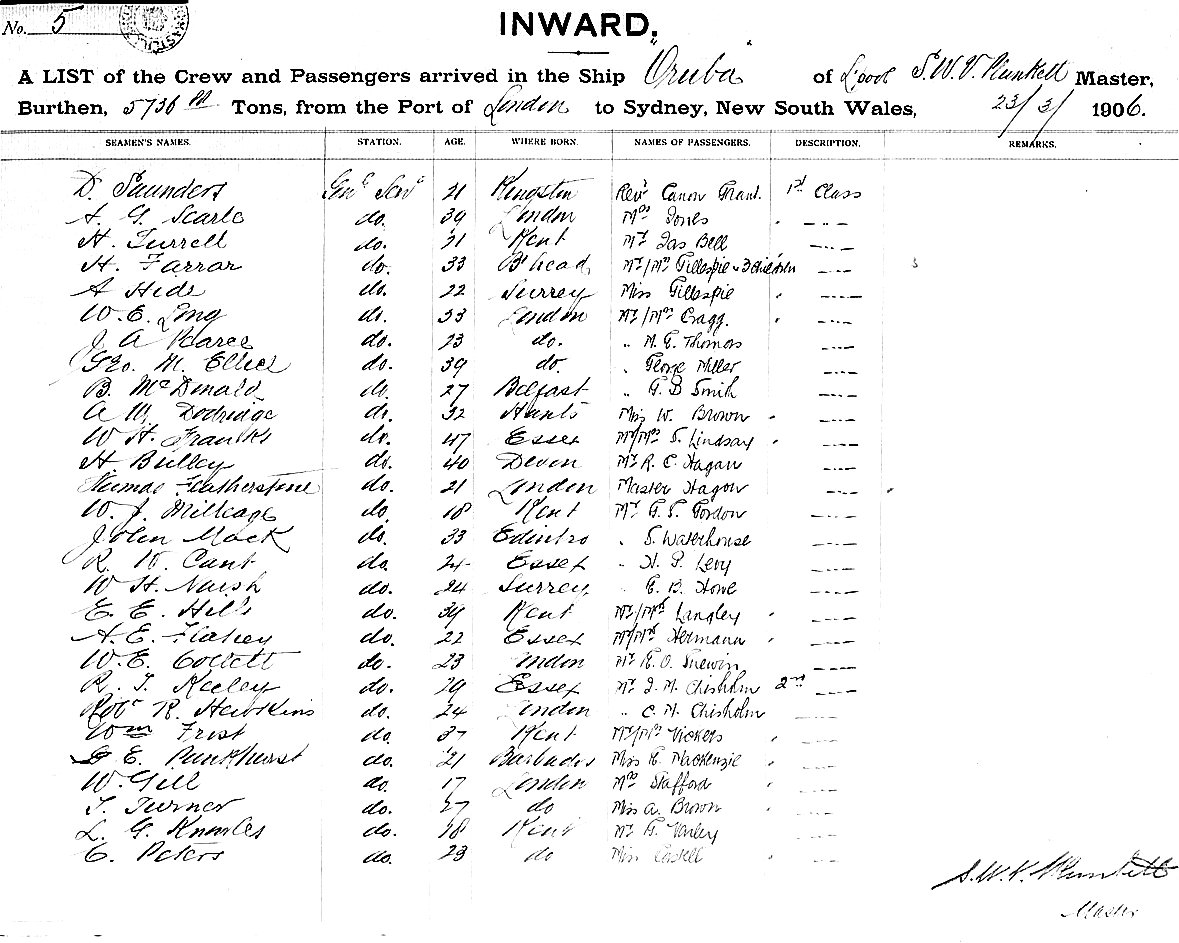 No. 5
INWARD.
A LIST of the Crew and Passengers arrived in the Ship "Oruba" of L'pool S.W.V. Plunkett Master,
Burthen, 5736 Tons, from the Port of London to Sydney, New South Wales, 23/3/ 1906.
SEAMEN'S NAMES. STATION. AGE. WHERE BORN. NAMES OF PASSENGERS. DESCRIPTION. REMARKS.
D. Saunders Genl Servt 21 Kingston Revd Canon Grant. 1st Class
A. G. Searle do. 39 London Mrs Jones " -----
H. Turrell do. 21 Kent Mr Jas Bell -----
H. Farrar do. 33 B'head Mr/Mrs Gillespie & 3 children -----
A Hide do. 22 Surrey Miss Gillespie " -----
W. E. Long do. 33 London Mr/Mrs Cragg. " -----
J. A Pearce do. 23 do. " M. E. Thomas -----
Geo. M. do. 39 do. " George Miller -----
B. McDonald do. 27 Belfast " G. B Smith -----
A W. Dodridge do. 32 Hants Miss W. Brown " -----
W H. Franks do. 47 Essex Mr/Mrs S. Lindsay " -----
H. Bulley do. 40 Devon Mr R. C. Hagan -----
Thomas Featherstone do. 21 London Master Hagon -----
W. J. Milleage do. 18 Kent Mr G. S. Gordon -----
John Mack do. 33 Edinbro " S. Waterhouse -----
R. W. Cant do. 24 Essex " H. P. Levy -----
W H. Naish do. 24 Surrey " E. B. Howe -----
E. E. Hills do. 39 Kent Mr/Mrs Langley " -----
A. E. Flahey do. 22 Essex Mr/Mrs Hermann " -----
W. E. Collett do. 23 London Mr E. O. Trewin -----
R. T. Keeley do. 29 Essex Mr J. M. Chisholm 2nd -----
Robt R. Hawkins do. 24 London " C. M. Chisholm -----
Wm Frost do. 37 Kent Mr/Mrs Vickers " -----
G E. Punkhurst do. 21 Barbados Miss E. Mackenzie " -----
W. Gill do. 17 London Mrs Stafford " -----
T. Turner do. 27 do Miss A. Brown " -----
L. G. Knowles do. 18 Kent Mr G. Varley -----
C. Peters do. 23 do Miss Castell " -----
S.W.V. Plunkett
Master